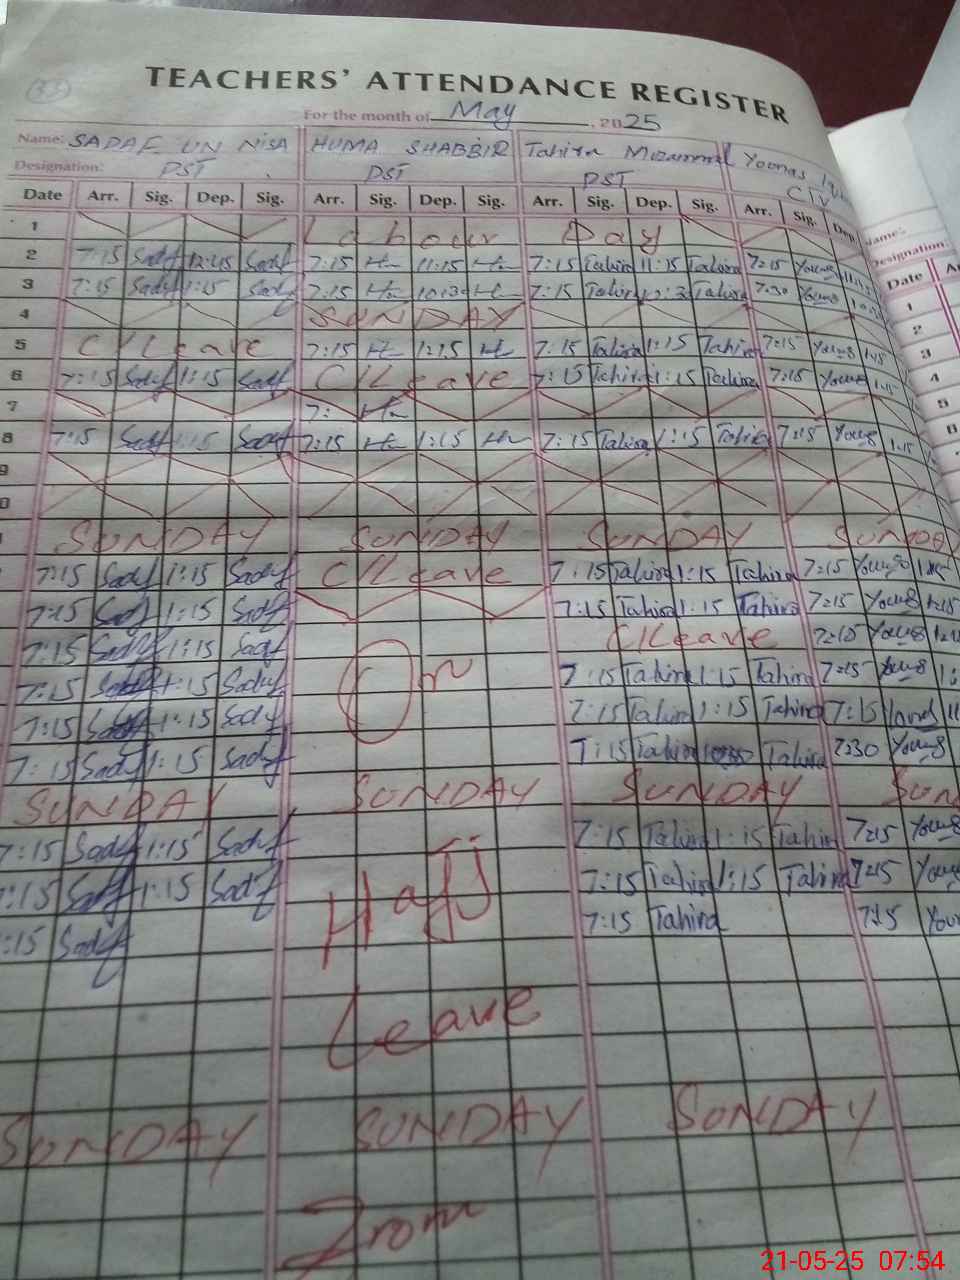 33
TEACHERS' ATTENDANCE REGISTER
For the month of May, 2025
Name: SADAF UN NISA HUMA SHABBIR Tahira Muzammal Younas
Designation: PST PST PST CTV
Date Arr. Sig. Dep. Sig. Arr. Sig. Dep. Sig. Arr. Sig. Dep. Sig. Arr. Sig. Dep.
1 Labour Day
2 7:15 Sadf 12:45 Sadf 7:15 Hu 11:15 Hu 7:15 Tahira 11:15 Tahira 7:15 Youns
3 7:15 Sadf 1:15 Sadf 7:15 Hu 10:30 Hu 7:15 Tahira Tahira 7:30 Youns
4 SUNDAY
5 C/Leave 7:15 Hu 1:15 Hu 7:15 Tahira 1:15 Tahira 7:15 Youns 1:15
6 7:15 Sadf 1:15 Sadf C/Leave 7:15 Tahira 1:15 Tahira 7:15 Youns 1:15
7 7: Hu
8 7:15 Sadf 1:15 Sadf 7:15 Hu 1:15 Hu 7:15 Tahira 1:15 Tahira 7:15 Youns 1:15
9
0
SUNDAY SUNDAY SUNDAY SUNDAY
7:15 Sadf 1:15 Sadf C/Leave 7:15 Tahira 1:15 Tahira 7:15 Youns
7:15 Sadf 1:15 Sadf 7:15 Tahira 1:15 Tahira 7:15 Youns 1:15
7:15 Sadf 1:15 Sadf C/Leave 7:15 Youns
7:15 Sadf 1:15 Sadf On 7:15 Tahira 1:15 Tahira 7:15 Youns
7:15 Sadf 1:15 Sadf 7:15 Tahira 1:15 Tahira 7:15 Youns
7:15 Sadf 1:15 Sadf 7:15 Tahira Tahira 7:30 Youns
SUNDAY SUNDAY SUNDAY SUN
7:15 Sadf 1:15 Sadf 7:15 Tahira 1:15 Tahira 7:15 Youns
7:15 Sadf 1:15 Sadf Hajj 7:15 Tahira 1:15 Tahira 7:15 Youns
:15 Sadf 7:15 Tahira 7:15 Youn
Leave
SUNDAY SUNDAY SUNDAY
From
Name:
Designation:
Date A
1
2
3
4
5
6
21-05-25 07:54